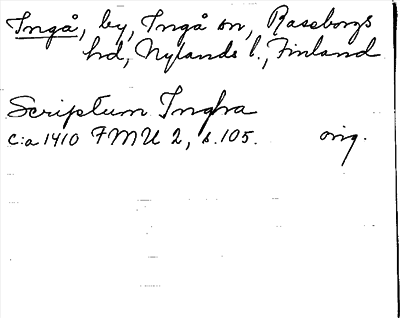 Ingå, by, Ingå sn, Raseborgs
hd, Nylands l., Finland
Scriptum Ingha
c:a 1410 FMU 2, s. 105. orig.